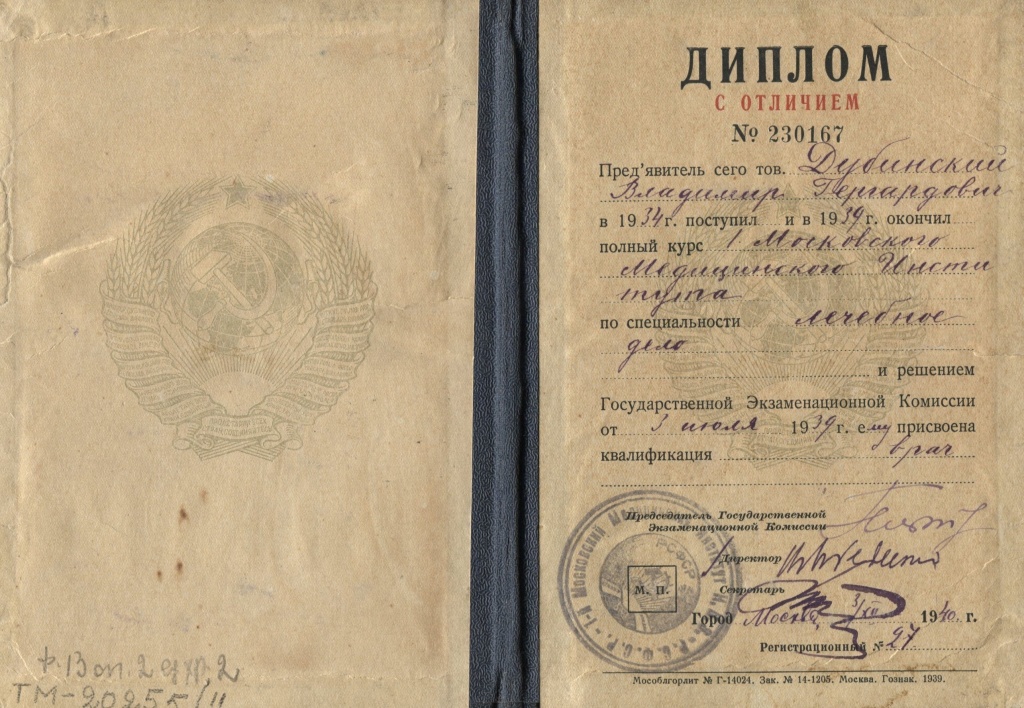 ф. 13 оп. 2 ед.хр. 2
ТМ-20255/11
ДИПЛОМ
С ОТЛИЧИЕМ
№ 230167
Пред'явитель сего тов. Дубинский
Владимир Гергардович
в 1934 г. поступил и в 1939 г. окончил
полный курс 1 Московского
Медицинского Инсти
тута
по специальности лечебное
дело
и решением
Государственной Экзаменационной Комиссии
от 3 июля 1939 г. ему присвоена
квалификация врач
Председатель Государственной
Экзаменационной Комиссии
Директор
Секретарь
М. П.
Город Москва 3/XII 1940. г.
Регистрационный № 27
Мособлгорлит № Г-14024. Зак. № 14-1205. Москва. Гознак. 1939.